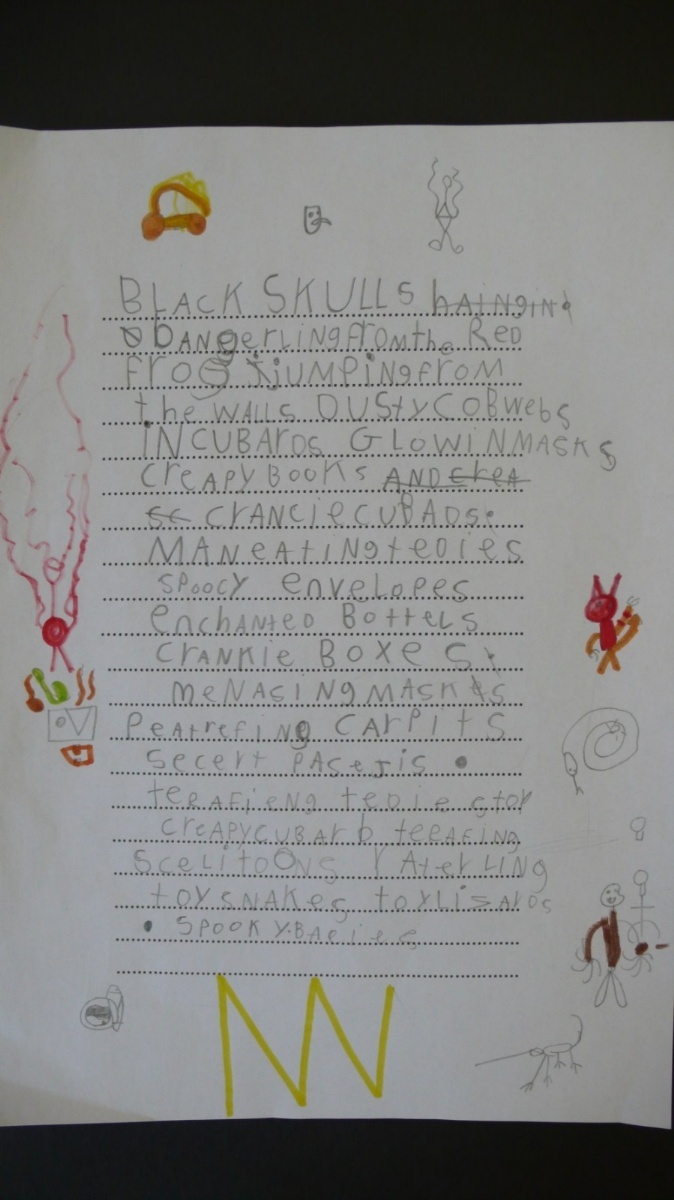 BLACK SKULLS hAINgIN
DANgerLINg from the Red
frog jUMPiNg from
the WALLS DUStY COBwebs
iN CUBArDs GLOWiN MASKS
CreAPY BOOKs AND CreA
sc CrANCie CUPADs.
MAN eAtiNg teDies
SPOOCY eNveLOPes
eNchANteD BotteLs
CrANKie BOXes
meNASiNg MASKs
PeAtrefiNg CArPits
Secert PASeJis
terAFieNg teDie
creAPY CUBArb teerAFiNg
SceLitOONs rAterLiNg
toY SNAKes toY LiSArDs
SPOOKY